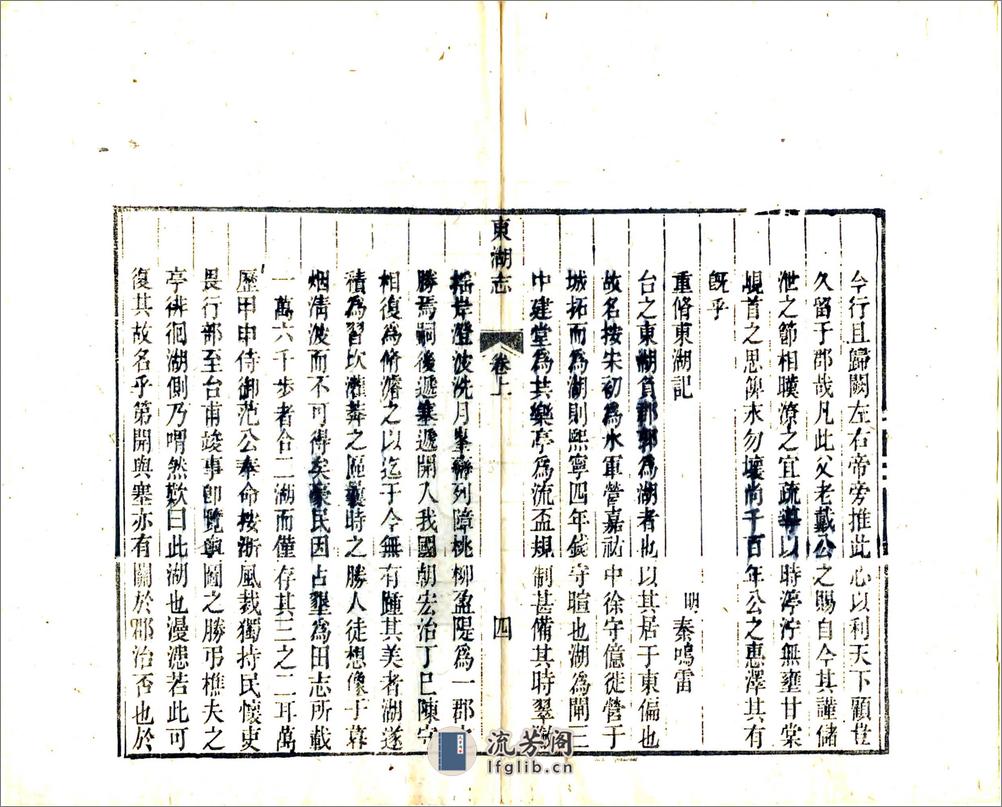 今行且歸闕左右帝旁推此心以利天下顧豈
久留于郡哉凡此父老戴公之賜自今其謹儲
泄之節相暵潦之宜疏導以時渟泞無壅甘棠
峴首之思俾永勿壞尚千百年公之惠澤其有
旣乎
重脩東湖記
明 秦鳴雷
台之東湖負郡郭為湖者也以其居于東偏也
故名按宋初為水軍營嘉祐中徐守億徙營于
城拓而為湖則熙寧四年錢守暄也湖為閘三
中建堂為共樂亭為流盃規制甚備其時翠
東湖志
卷上
四
搖岸澄波洗月羣巒列障桃柳盈隄為一郡
勝焉嗣後遞塞遞開入我國朝宏治丁巳陳守
相復為脩濬之以迄于今無有踵其美者湖遂
積為習坎灌莽之區曩時之勝人徒想像于暮
烟淸波而不可得矣豪民因占墾為田志所載
一萬六千步者合二湖而僅存其三之二耳萬
歷甲申侍御范公奉命按浙風裁獨持民懷吏
畏行部至台甫竣事卽覽輿圖之勝弔樵夫之
亭徘徊湖側乃喟然歎曰此湖也漫漶若此可
復其故名乎第開與塞亦有關於郡治否也於
流芳阁
lfglib.cn